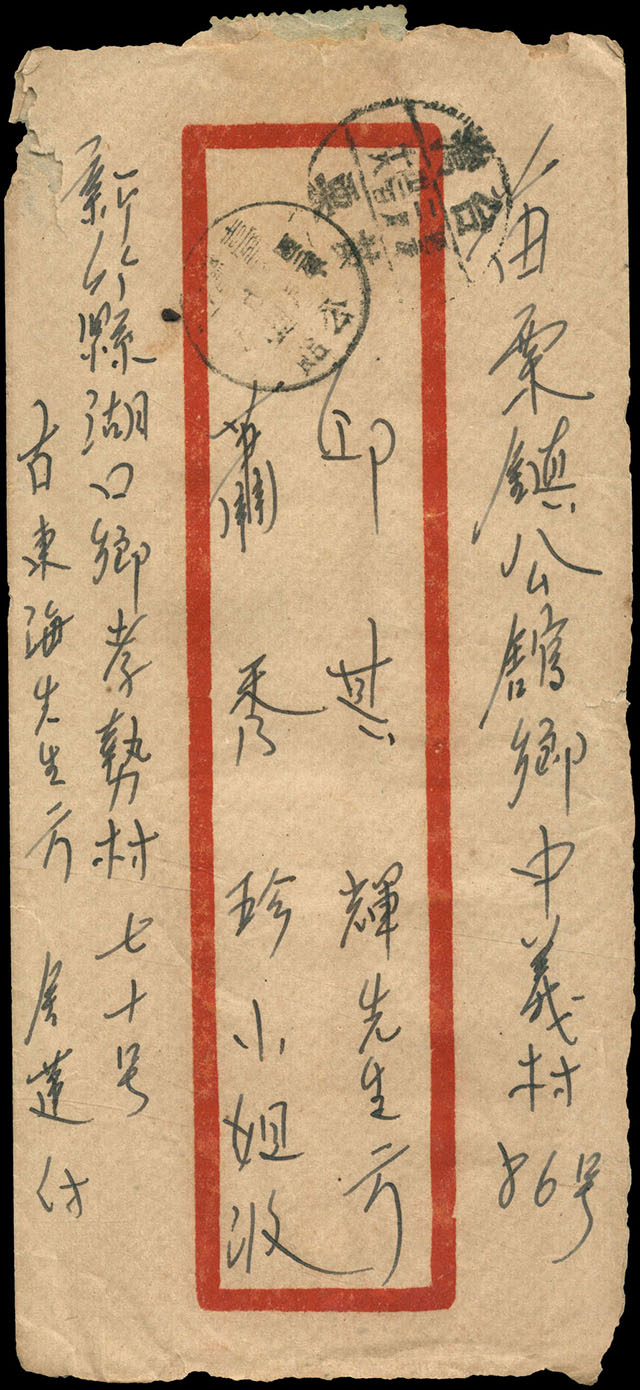 苗栗鎮公館鄉中義村86号
邱其輝先生方
蕭秀珍小姐收
新竹縣湖口鄉孝勢村七十号
古東海先生方 蓮付
台灣 苗栗
公館